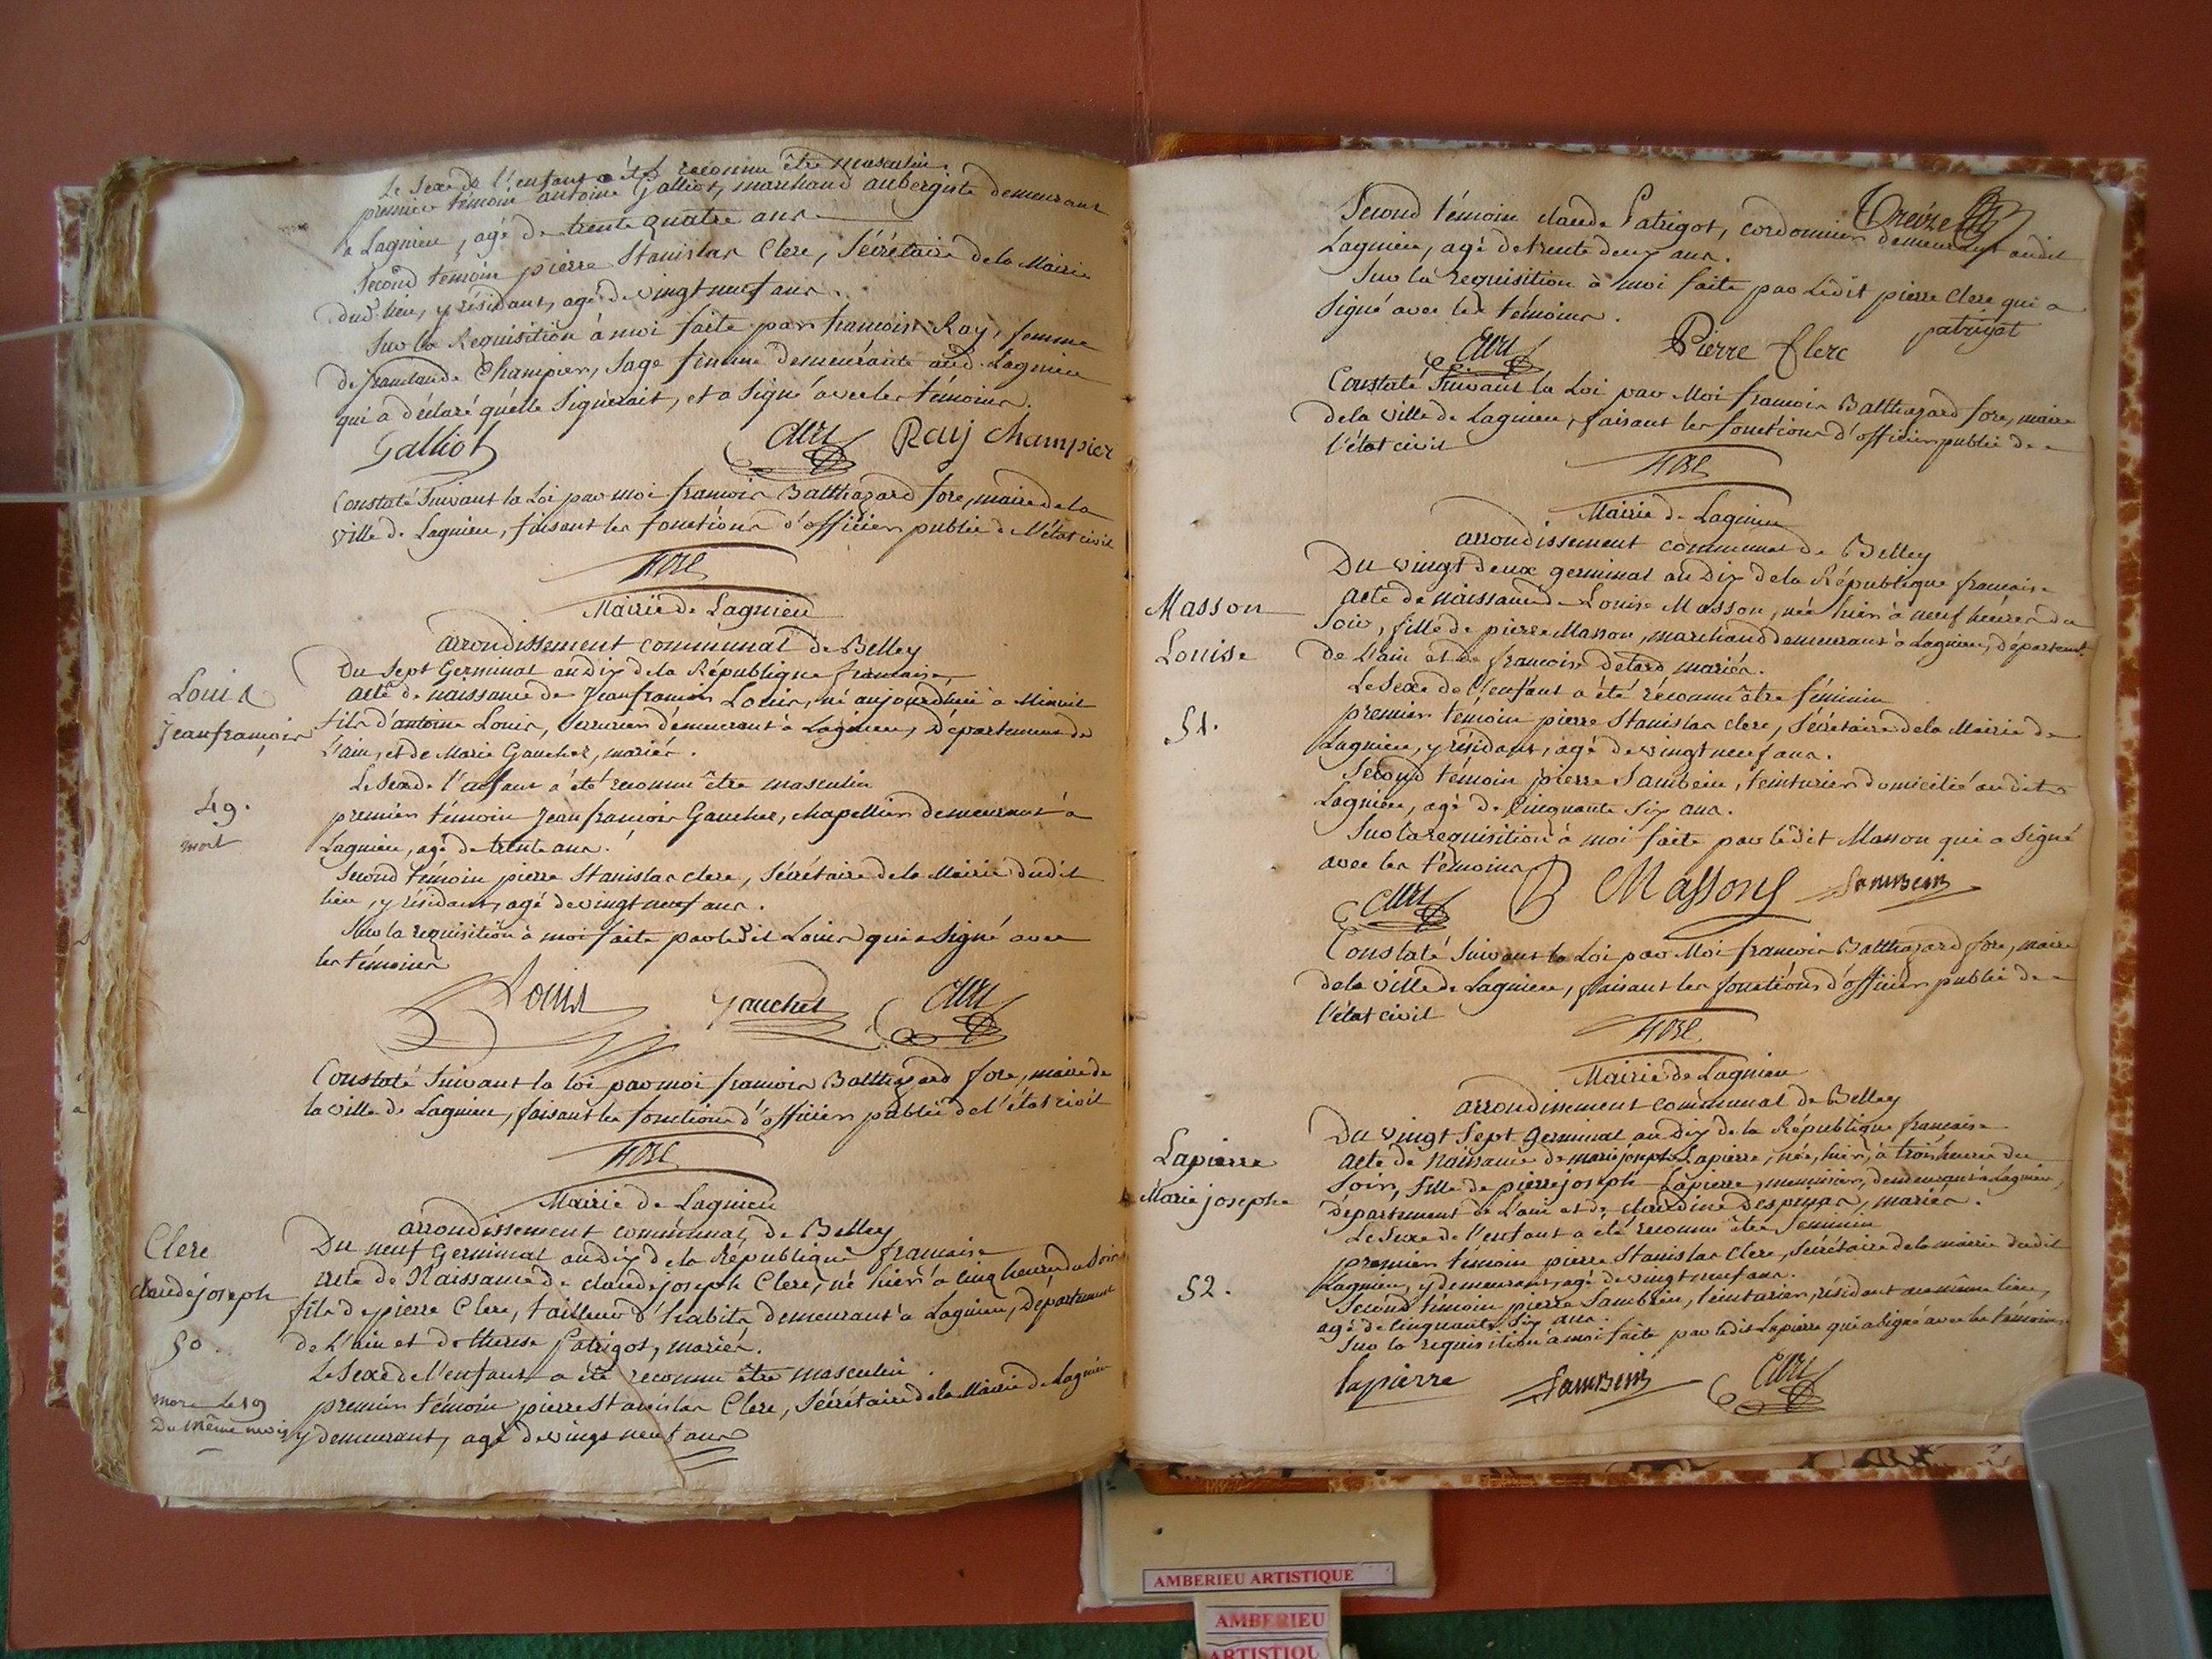 Le Sexe de l'enfant a été reconnu être masculin.
premier témoin antoine Galliot, marchand aubergiste demeurant
a Lagnieu, agé de trente quatre ans
Second témoin pierre Stanislas Clerc, Sécrétaire de la Mairie
dud. lieu, y résidant, agé de vingt neuf ans.
Sur la Requisition à moi faite par francoise Ray, femme
de Champier, Sage femme demeurante aud. Lagnieu
qui a déclaré qu'elle Signerait, et a Signé avec les témoins.
Galliot Clerc Ray champier
Constaté Suivant la Loi par moi francois Balthazard fore, maire de la
ville de Lagnieu, faisant les fonctions d'officier public de l'état civil
fore
Mairie de Lagnieu
arrondissement communal de Belley
Du Sept Germinal an dix de la République francaise,
Louis
acte de naissance de Jean francois Louis, né aujourdhui à Minuit
Jean francois
fils d'antoine Louis, Serrurier demeurant à Lagnieu, Département de
l'ain, et de Marie Gauchet, mariés.
Le Sexe de l'enfant a été reconnu être masculin
49.
premier témoin Jean francois Gauchet, chapellier demeurant à
mort
Lagnieu, agé de trente ans.
Second témoin pierre Stanislas clerc, Sécrétaire de la Mairie dudit
lieu, y résidant, agé de vingt neuf ans.
Sur la requisition à moi faite par ledit Louis qui a Signé avec
les témoins
Louis Gauchet Clerc
Constaté Suivant la loi par moi francois Balthazard fore, maire de
la ville de Lagnieu, faisant les fonctions d'officier public de l'état civil
fore
Mairie de Lagnieu
arrondissement communal de Belley
Clerc
Du neuf Germinal an dix de la République francaise
acte de Naissance de claude joseph Clerc, né hier à cinq heures du Soir
claude joseph
fils de pierre Clerc, tailleur d'habits demeurant à Lagnieu, Département
50.
de L'ain et de therese Patrigot, mariés.
Le Sexe de l'enfant a été reconnu être masculin.
mort le 19
premier témoin pierre Stanislas Clerc, Sécrétaire de la Mairie de Lagnieu
Du même mois
y demeurant, agé de vingt neuf ans
Treize
Second témoin claude Patrigot, cordonnier demeurant audit
Lagnieu, agé de trente deux ans.
Sur la requisition à moi faite par Ledit pierre Clerc qui a
Signé avec les témoins.
Clerc Pierre Clerc patrigot
Constaté Suivant la Loi par Moi francois Balthazard fore, maire
de la ville de Lagnieu, faisant les fonctions d'officier public de
l'état civil
fore
Mairie de Lagnieu
arrondissement communal de Belley
Du vingt deux germinal an dix de la République francaise
Masson
acte de naissance de Louise Masson, née hier à neuf heures du
Soir, fille de pierre Masson, marchand demeurant à Lagnieu, départemt
Louise
de L'ain et de francoise mariés.
Le Sexe de l'enfant a été réconnu être féminin
51.
premier témoin pierre Stanislas clerc, Sécrétaire de la Mairie de
Lagnieu, y résidant, agé de vingt neuf ans.
Second témoin pierre Sambein, teinturier domicilié audit
Lagnieu, agé de Cinquante Six ans.
Sur la requisition à moi faite par ledit Masson qui a Signé
avec les témoins
Clerc P Masson Sambein
Constaté Suivant la Loi par Moi francois Balthazard fore, maire
de la ville de Lagnieu, faisant les fonctions d'officier public de
l'état civil
fore
Mairie de Lagnieu
arrondissement communal de Belley
Du vingt Sept Germinal an dix de la République francaise
Lapierre
acte de Naissance de marie joseph Lapierre, née, hier, à trois heures du
Soir, fille de pierre joseph Lapierre, menuisier, demeurant à Lagnieu,
Marie josephe
Département de L'ain et de claudine mariés.
Le Sexe de l'enfant a été reconnu être Seminin
premier témoin pierre Stanislas Clerc, Sécrétaire de la mairie dudit
52.
Lagnieu, y demeurant, agé de vingt neuf ans.
Second témoin pierre Sambein, teinturier, résidant au même lieu,
agé de Cinquante Six ans.
Sur la requisition à moi faite par ledit Lapierre qui a Signé avec les témoins.
lapierre Sambein Clerc
AMBERIEU ARTISTIQUE
AMBERIEU
ARTISTIQU